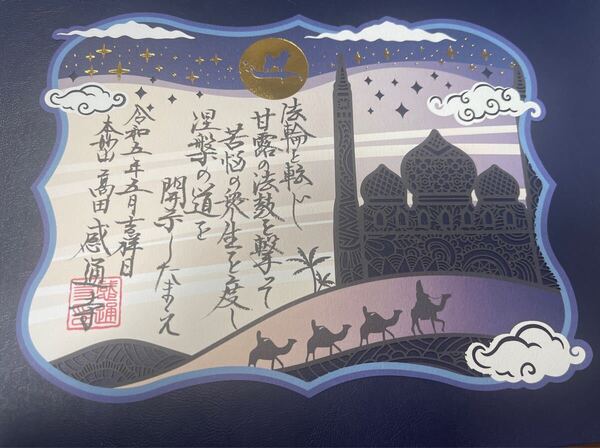 法輪を転じ
甘露の法鼓を撃って
苦悩の衆生を度し
涅槃の道を
開示したまえ
令和五年五月吉祥日
本山高田感通寺
感通